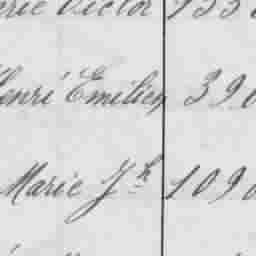 Victor 133
Henri Emilien 390
Marie Jh 1090